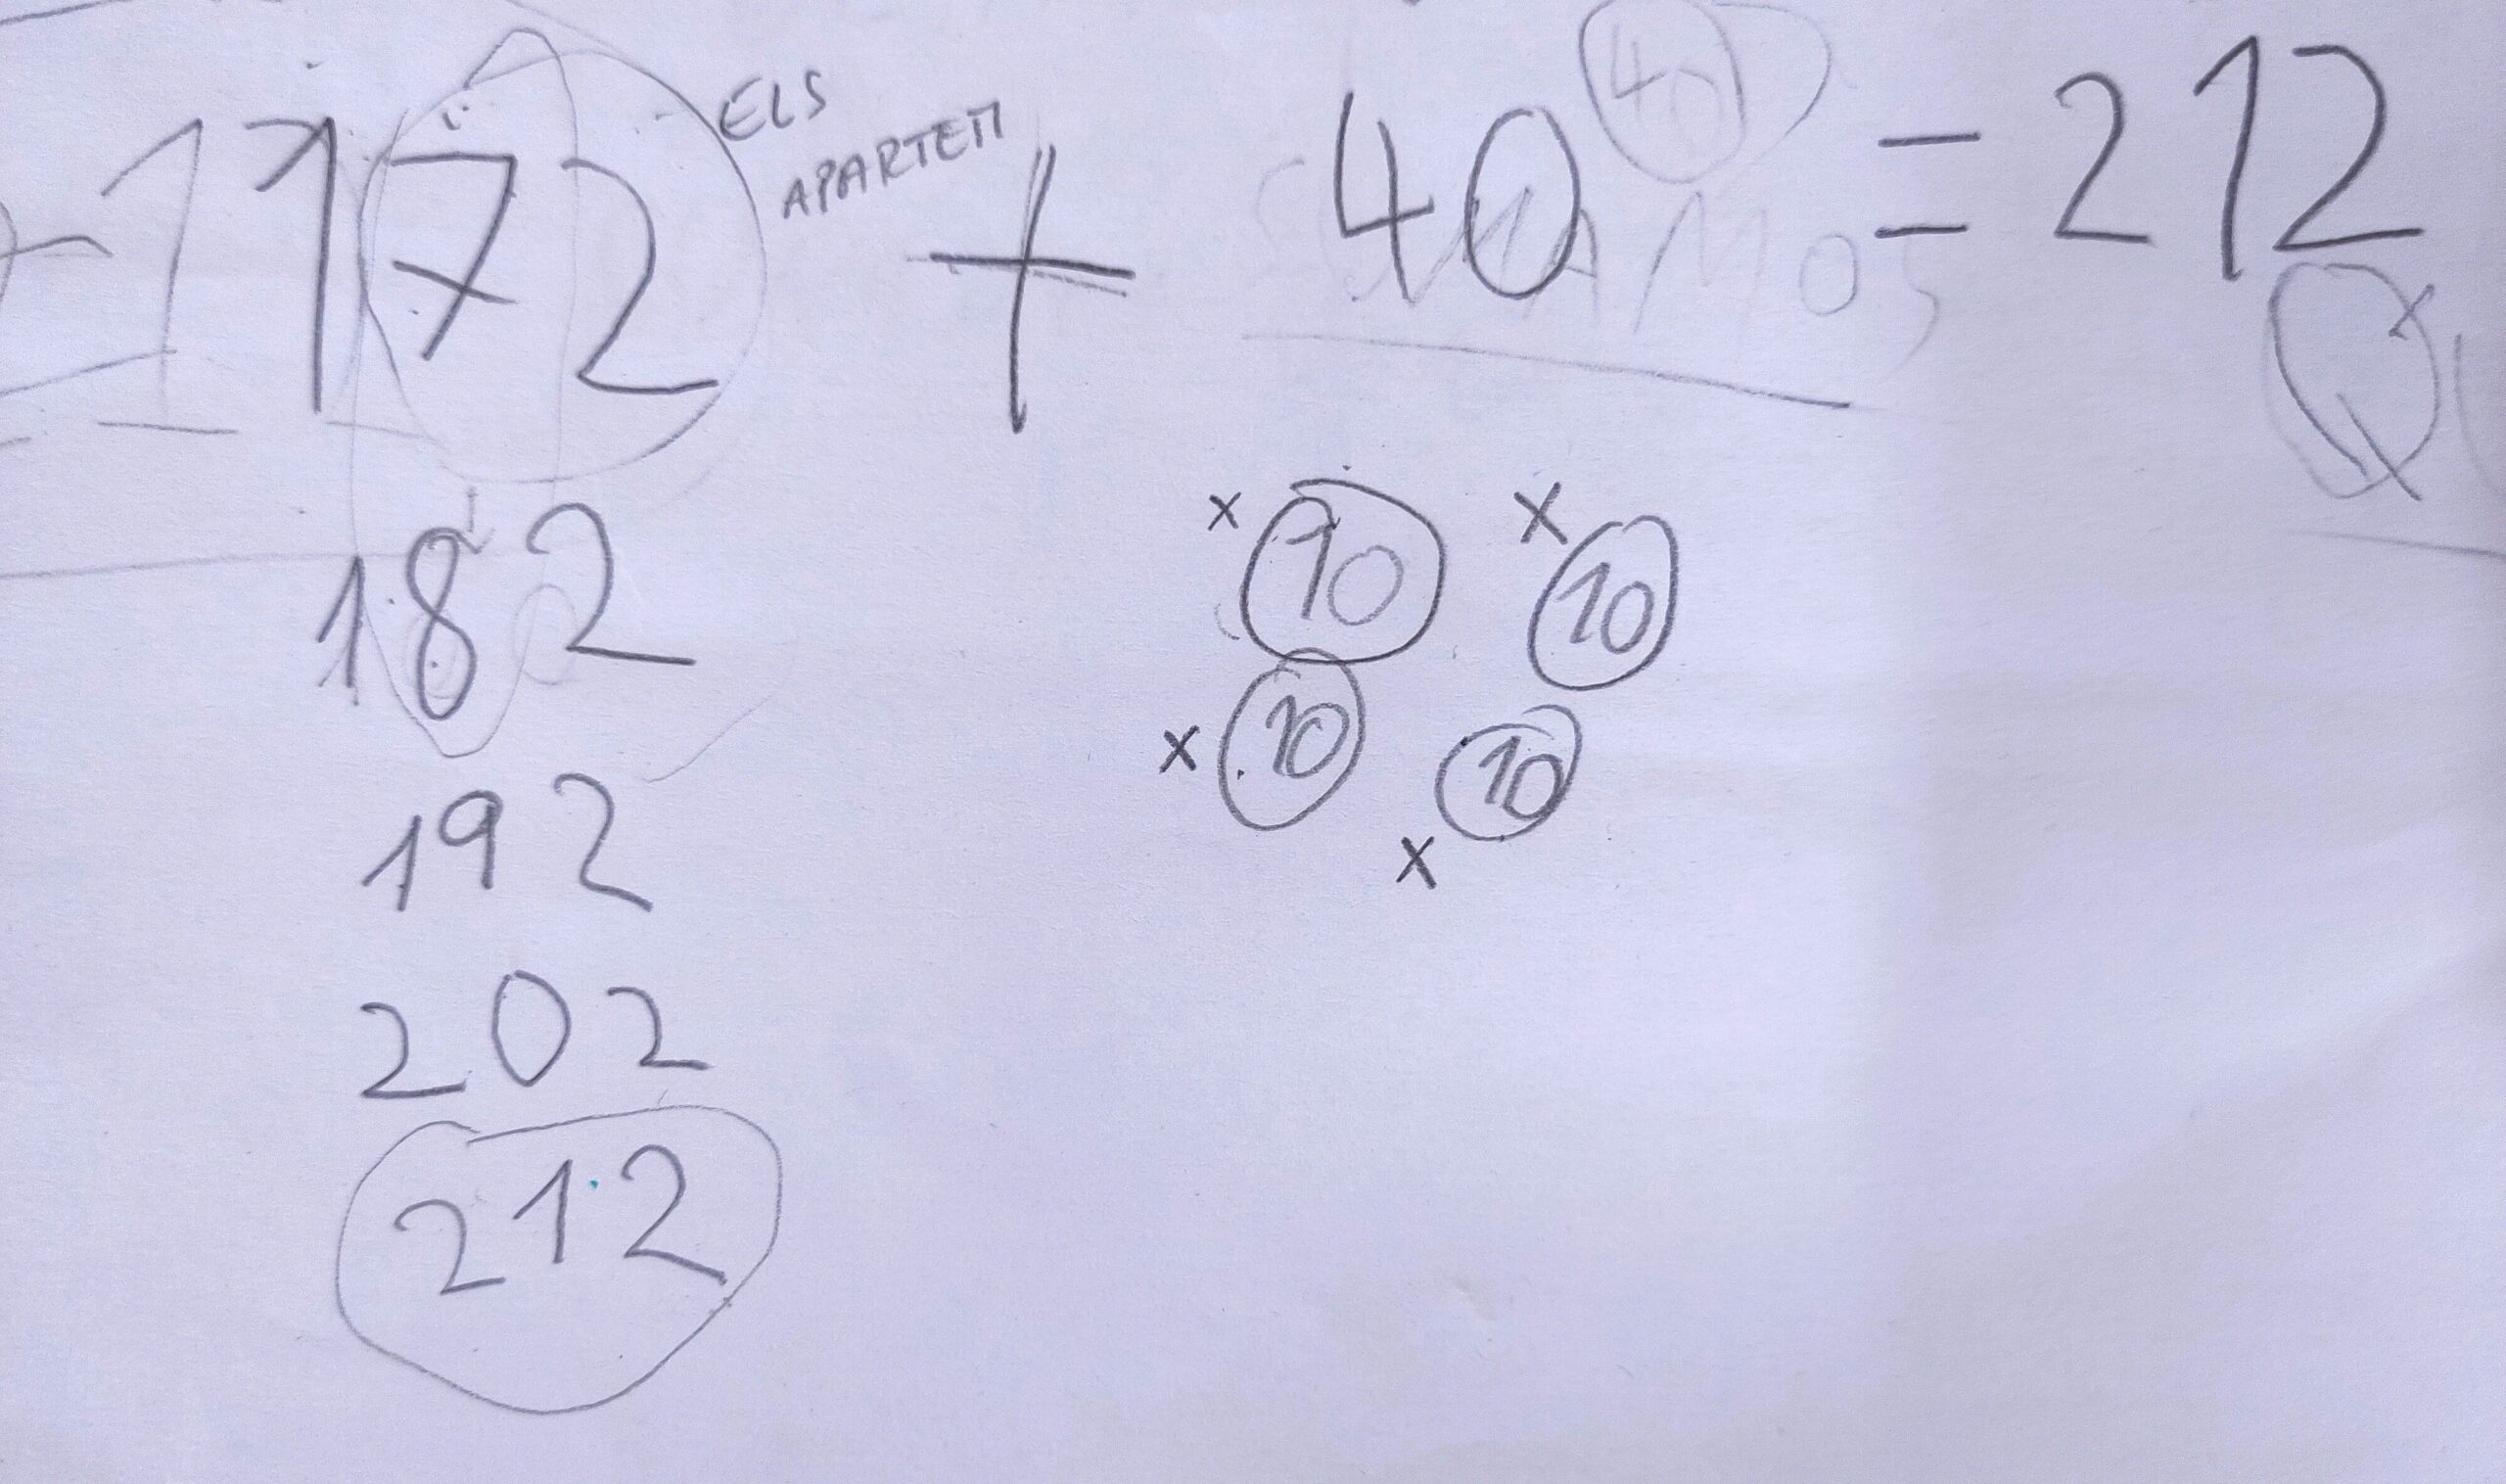 172 + 40 = 212
ELS
APARTEM
40
10 10
10 10
182
192
202
212